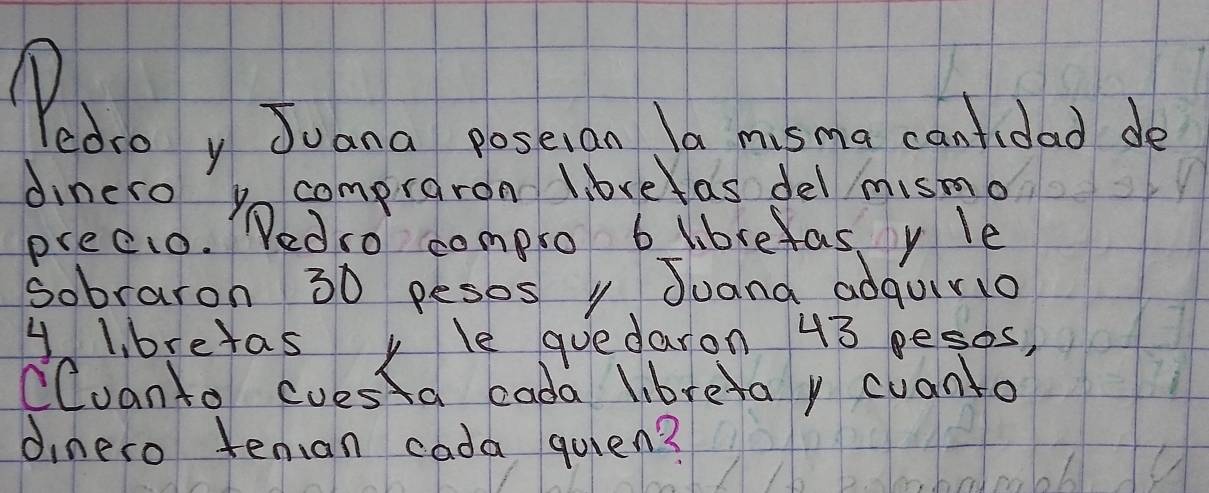 Pedro y Juana poseian la misma cantidad de
dinero y compraron libretas del mismo
precio. Pedro compro 6 libretas y le
sobraron 30 pesos y Juana adquirio
4 libretas y le quedaron 43 pesos,
¿Cuanto cuesta cada libreta y cuanto
dinero tenian cada quien?